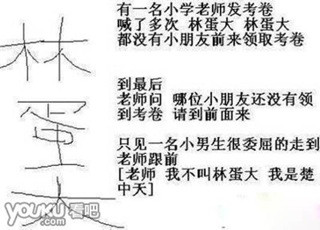 有一名小学老师发考卷
喊了多次 林蛋大 林蛋大
都没有小朋友前来领取考卷
到最后
老师问 哪位小朋友还没有领
到考卷 请到前面来
只见一名小男生很委屈的走到
老师跟前
[老师 我不叫林蛋大 我是楚
中天]
林
蛋
大
YOUKU看吧